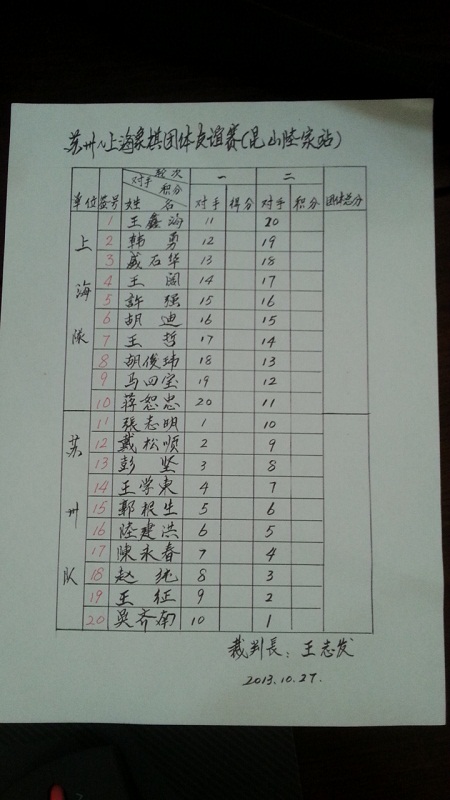 苏州、上海象棋团体友谊赛(昆山陆家站)
单位 签号 对手 轮次 积分 姓名 一 二 团体总分
对手 得分 对手 积分
上海队
1 王鑫海 11 20
2 韩勇 12 19
3 戚石华 13 18
4 王阔 14 17
5 許强 15 16
6 胡迪 16 15
7 王哲 17 14
8 胡俊玮 18 13
9 马四宝 19 12
10 蒋恕忠 20 11
苏州队
11 張志明 1 10
12 戴松顺 2 9
13 彭坚 3 8
14 王学東 4 7
15 郭根生 5 6
16 陸建洪 6 5
17 陳永春 7 4
18 赵纯 8 3
19 王征 9 2
20 吴齐南 10 1
裁判長：王志发
2013.10.27.